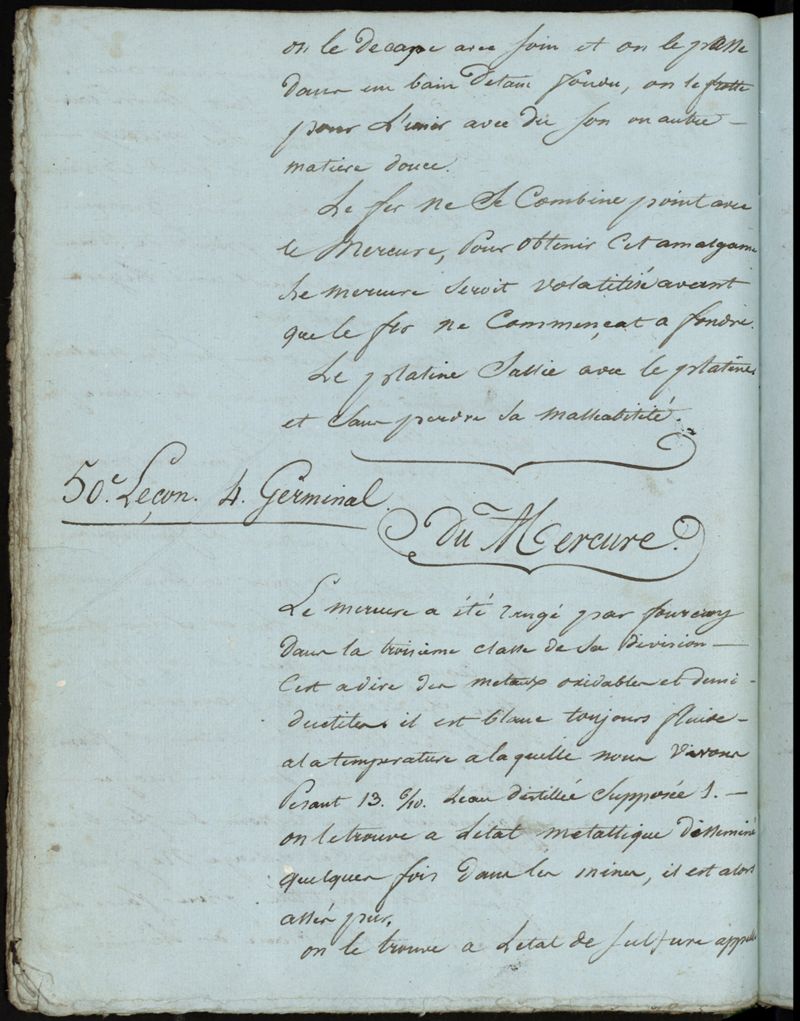 on le decape avec soin et on le passe
dans un bain d'etain fondu, on le frotte
pour l'unir avec du son ou autre
matiere douce.
Le fer ne se Combine point avec
le Mercure, Pour obtenir cet amalgame
le mercure seroit volatilisé avant
que le fer ne Commençat a fondre.
Le platine s'allie avec le platine
et sans perdre sa malleabilité.
50e. Leçon. 4. Germinal.
Du Mercure.
Le mercure a été rangé par fourcroy
dans la troisieme classe de sa division
C'est a dire des metaux oxidables et demi-
ductiles. il est blanc toujours fluide
a la temperature a laquelle nous vivons
Pesant 13. 6/10. L'eau distillée supposée 1.
on le trouve a l'etat metallique disseminé
quelques fois dans les mines, il est alors
assés pur.
on le trouve a l'etat de sulfure appellé